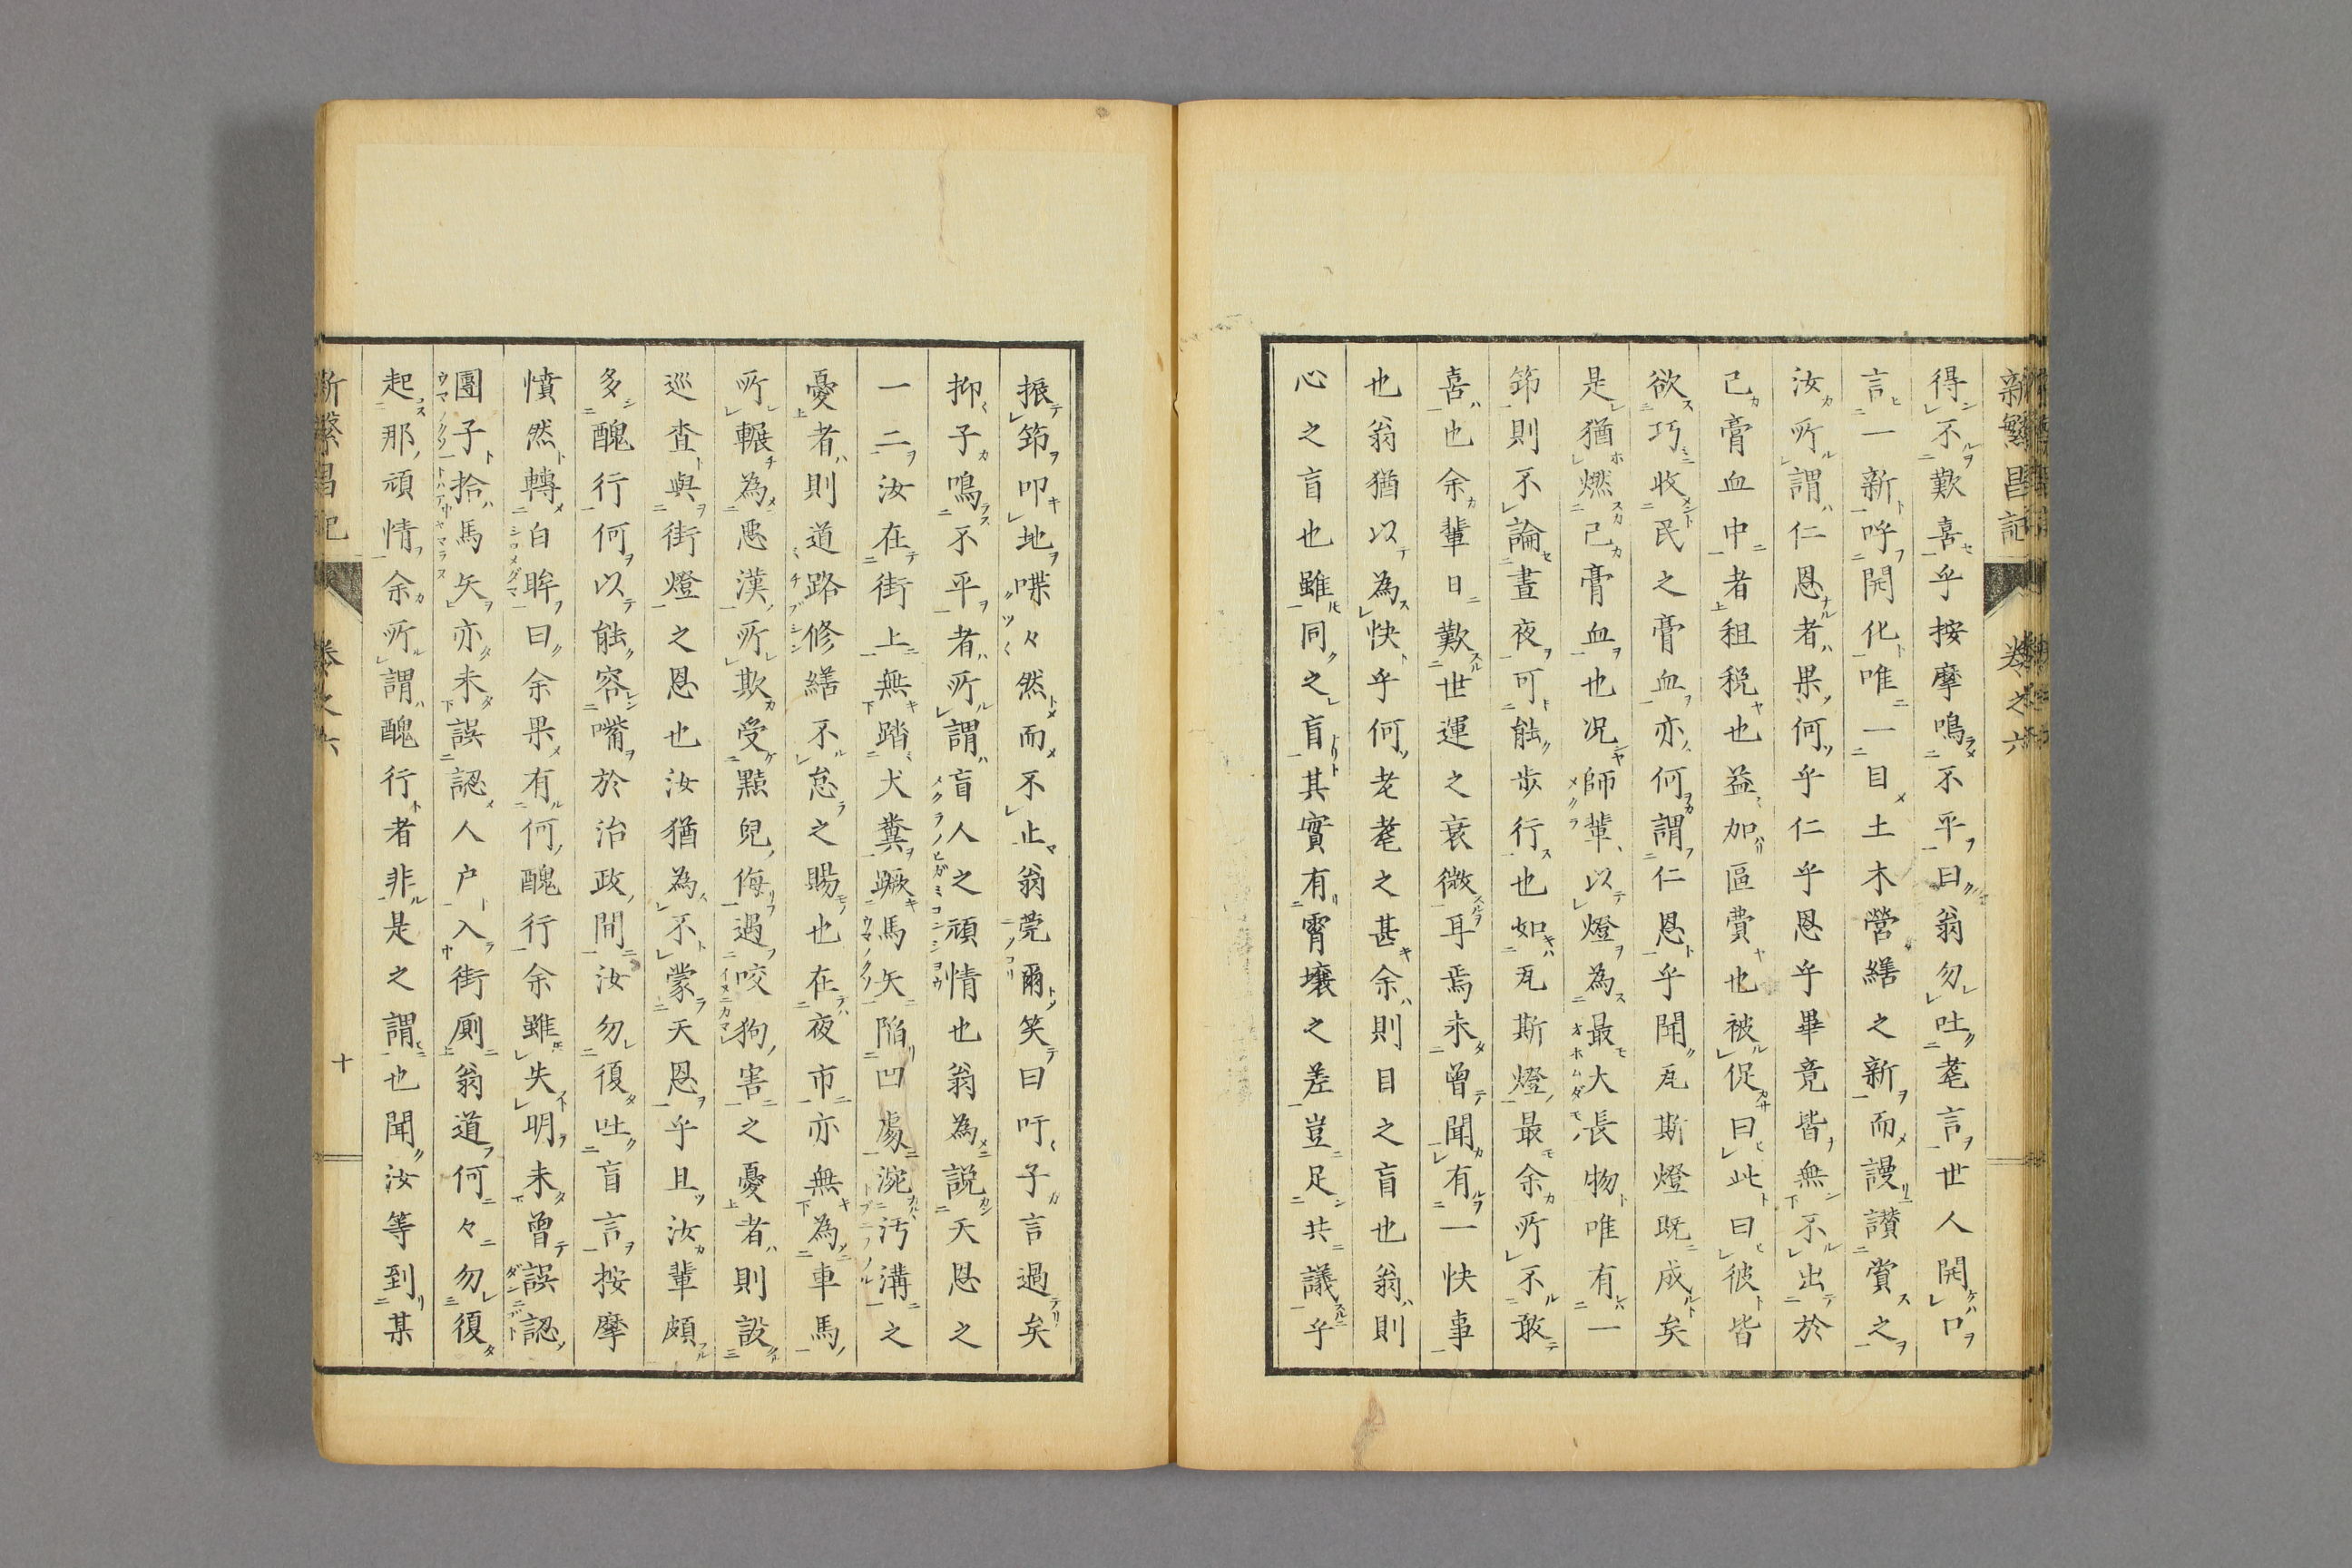 新繁昌記 卷之六
得不歎喜乎按摩鳴不平曰翁勿吐耄言世人開口
言一新呼開化唯一目土木營繕之新而謾讃賞之
汝所謂仁恩者果何乎仁乎恩乎畢竟皆無不出於
己膏血中者租税也益加區費也被促曰此曰彼皆
欲巧收民之膏血亦何謂仁恩乎聞瓦斯燈既成矣
是猶燃己膏血也况師輩以燈為最大長物唯有一
節則不論晝夜可能歩行也如瓦斯燈最余所不敢
喜也余輩日歎世運之衰微耳焉未曾聞有一快事
也翁猶以為快乎何老耄之甚余則目之盲也翁則
心之盲也雖同之盲其實有霄壤之差豈足共議乎
振節叩地喋々然而不止翁莞爾笑曰吁子言過矣
抑子鳴不平者所謂盲人之頑情也翁為説天恩之
一二汝在街上無踏犬糞蹶馬矢陷凹處涴汚溝之
憂者則道路修繕不怠之賜也在夜市亦無為車馬
所輾為悪漢所欺受點兒侮遇咬狗害之憂者則設
巡査與街燈之恩也汝猶為不蒙天恩乎且汝輩頗
多醜行何以能容嘴於治政間汝勿復吐盲言按摩
憤然轉白眸曰余果有何醜行余雖失明未曾誤認
團子拾馬矢亦未誤認人戸入街厠翁道何々勿復
起那頑情余所謂醜行者非是之謂也聞汝等到某
新繁昌記 卷之六 十